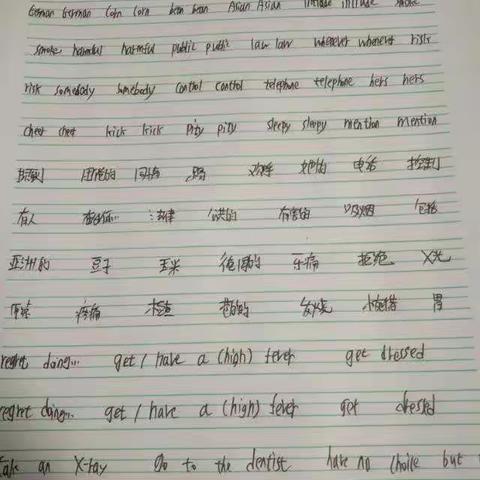 German German Corn Corn bean bean Asian Asian include include smoke
smoke harmful harmful public public law law wherever wherever risk
risk somebody somebody control control telephone telephone hers hers
cheer cheer kick kick pity pity sleepy sleepy mention mention
困倦的 同情 踢 欢呼 她的 电话 控制
有人 法律 公共的 有害的 吸烟 包括
亚洲的 豆子 玉米 德国的 牙痛 拒绝 X光
疼痛 检查 发烧 胃
regret doing... get / have a (high) fever get dressed
regret doing... get / have a (high) fever get dressed
take an X-ray go to the dentist have no choice but